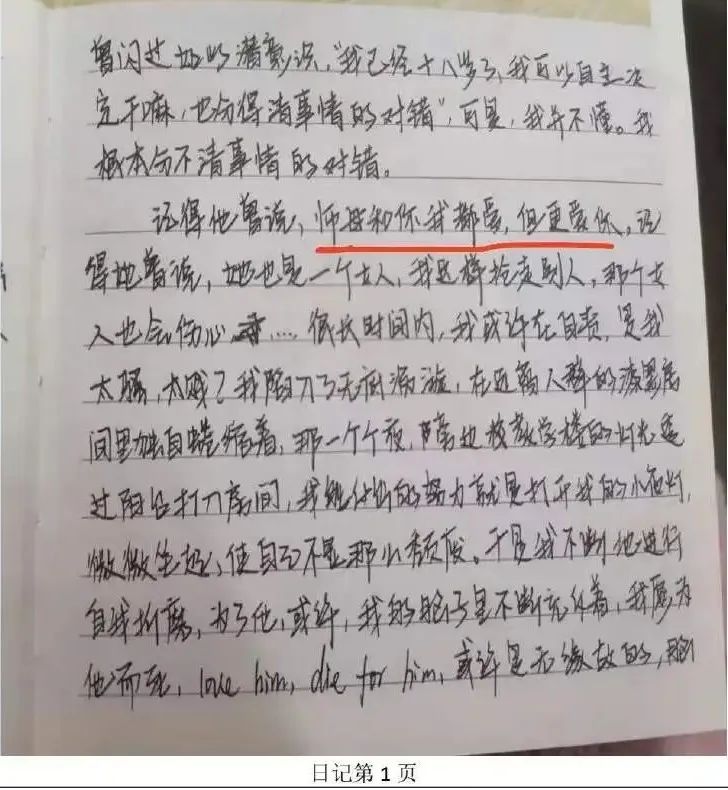 曾闪过她的潜意识，“我已经十八岁了，我可以自主决
定干嘛，也分得清事情的对错”，可是，我并不懂。我
根本分不清事情的对错。
记得他曾说，师母和你我都爱，但更爱你，记
得她曾说，她也是一个女人，我这样抢走别人，那个女
人也会伤心 .... 很长时间内，我或许在自责，是我
太骚，太贱？我陷入了无底漩涩，在远离人群的漆黑房
间里独自蜷缩着，那一个个夜，隔边校教学楼的灯光透
过阳台打入房间，我能付出的努力就是打开我的小夜灯，
微微坐起，使自己不显那么颓废。于是我不断地进行
自我折磨，为了他，或许，我的脑子里不断充斥着，我愿为
他而死，love him, die for him，或许是无缘故的，脑
日记第 1 页